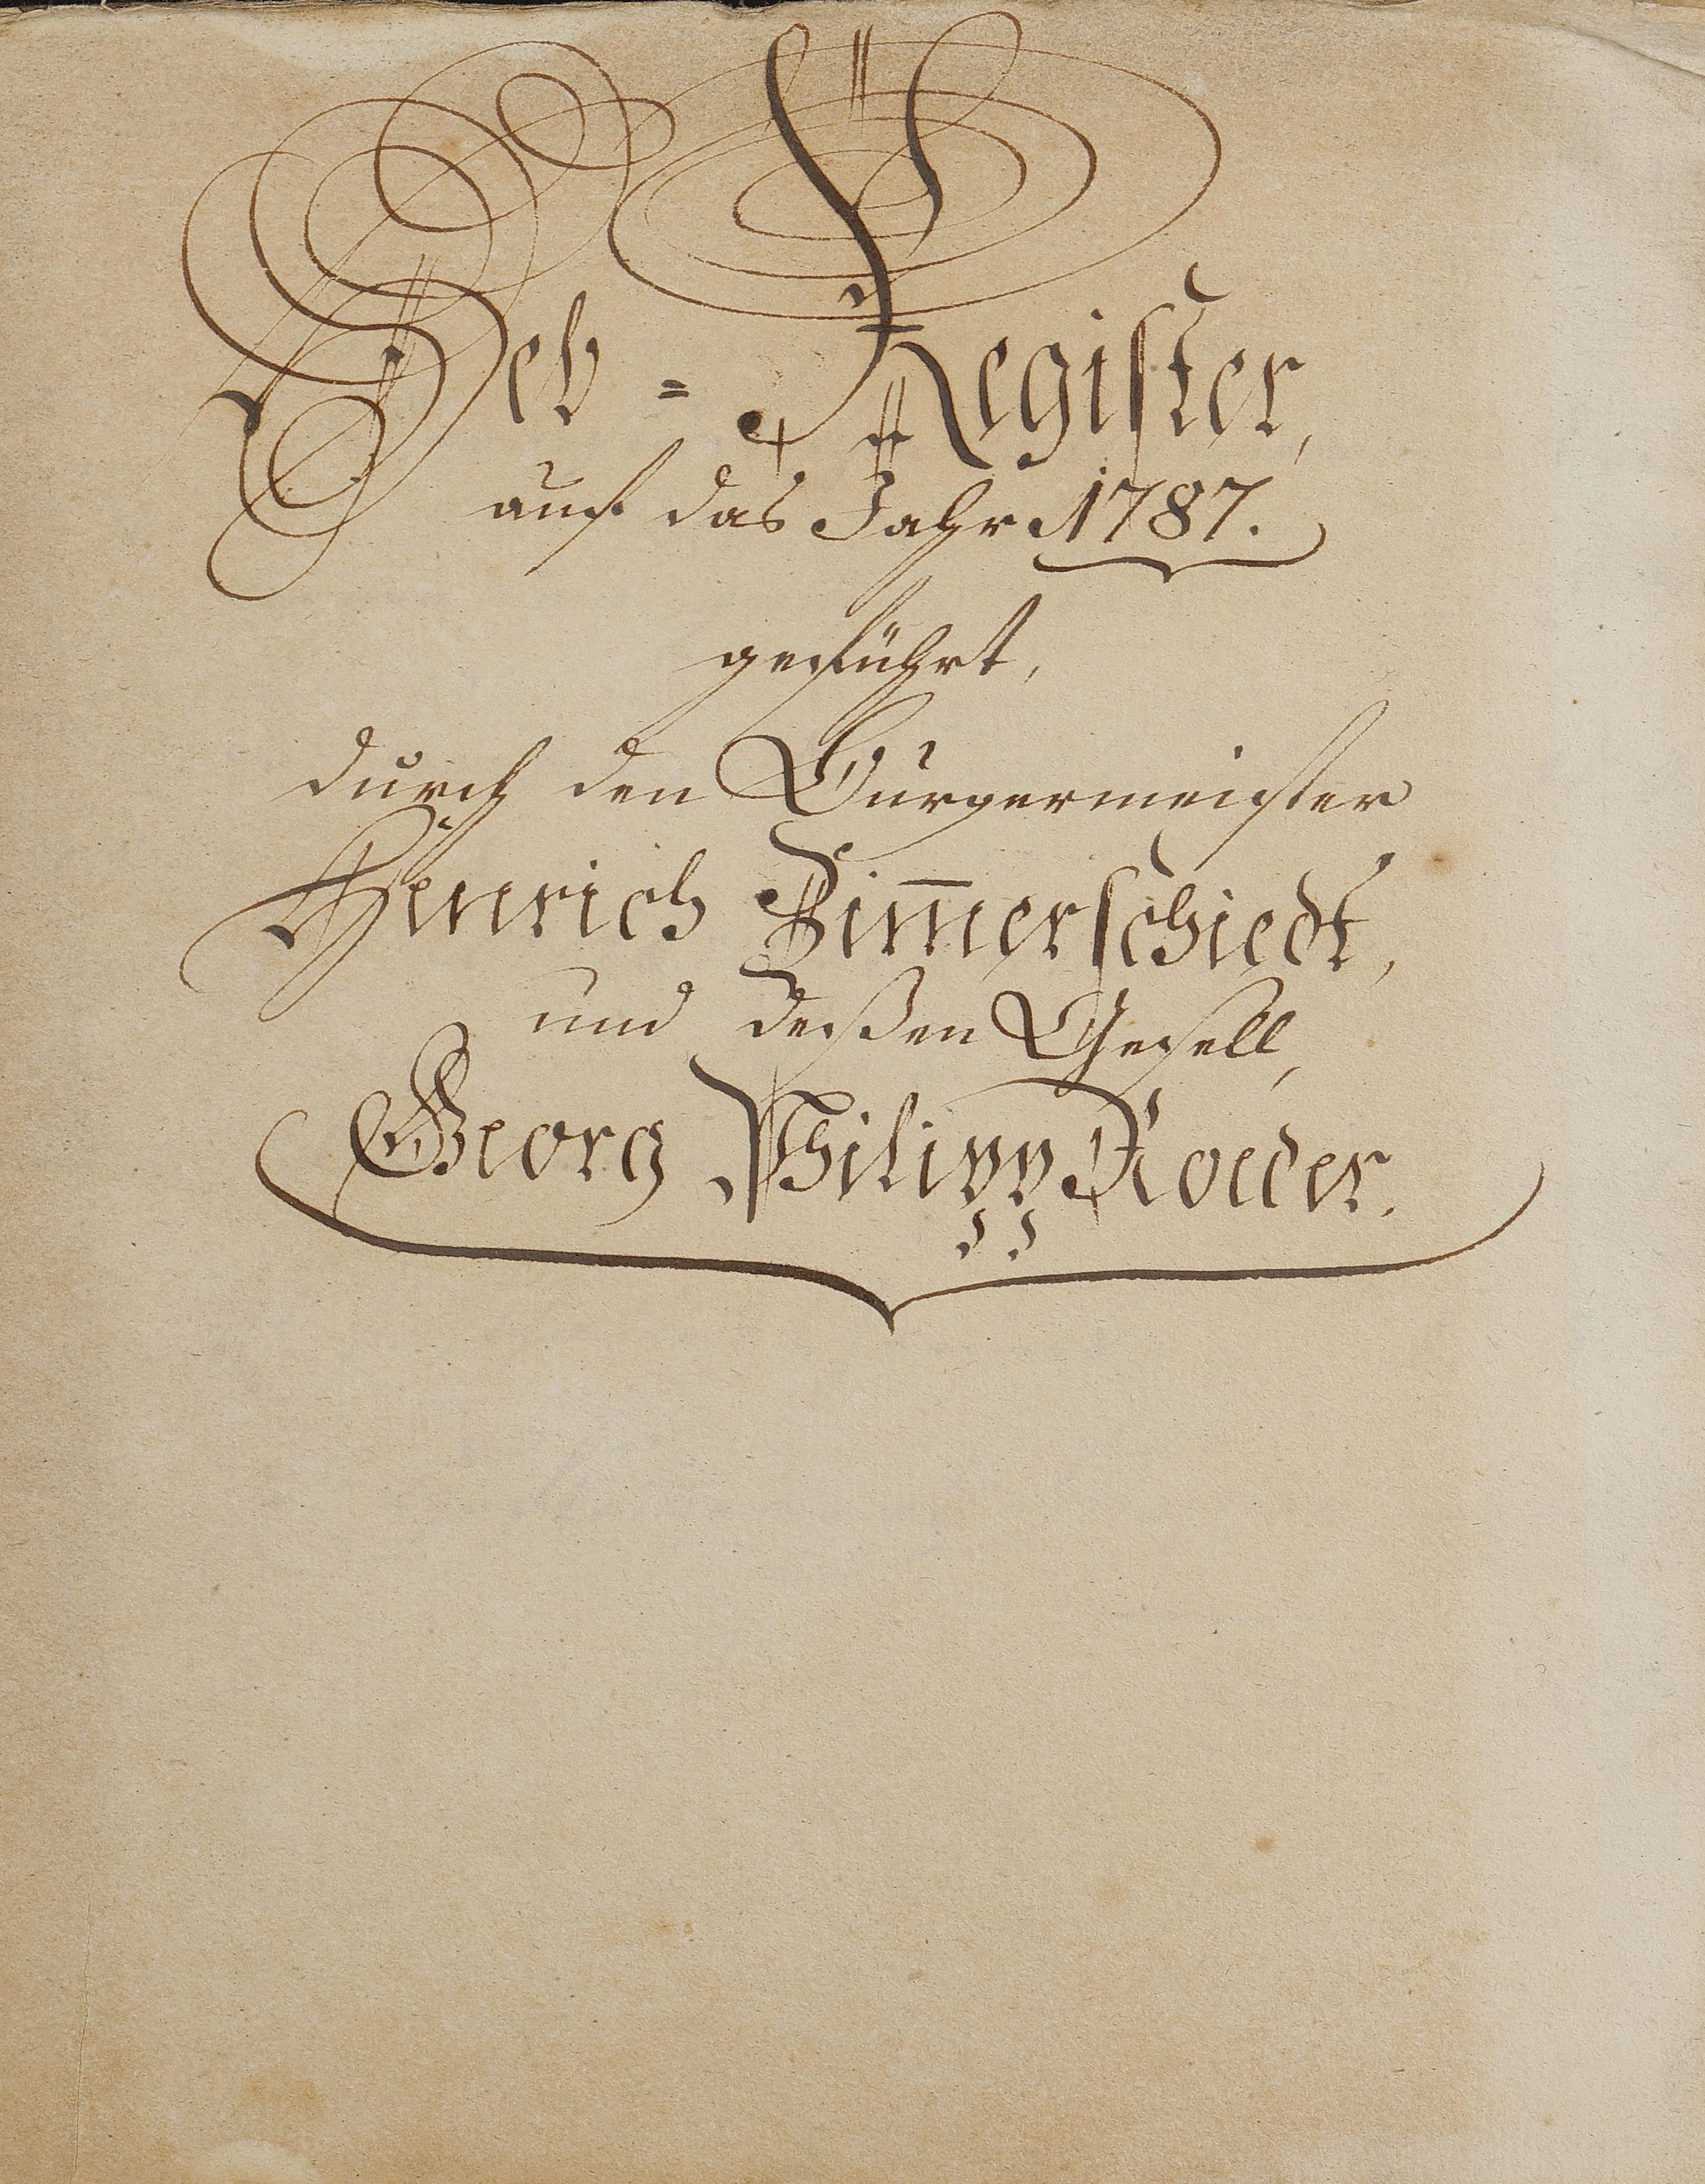 Heb=Register,
auf das Jahr 1787.
geführt,
durch den Bürgermeister
Henrich Zim̄erschiedt,
und deßen Gesell,
Georg Philipp Roeder.